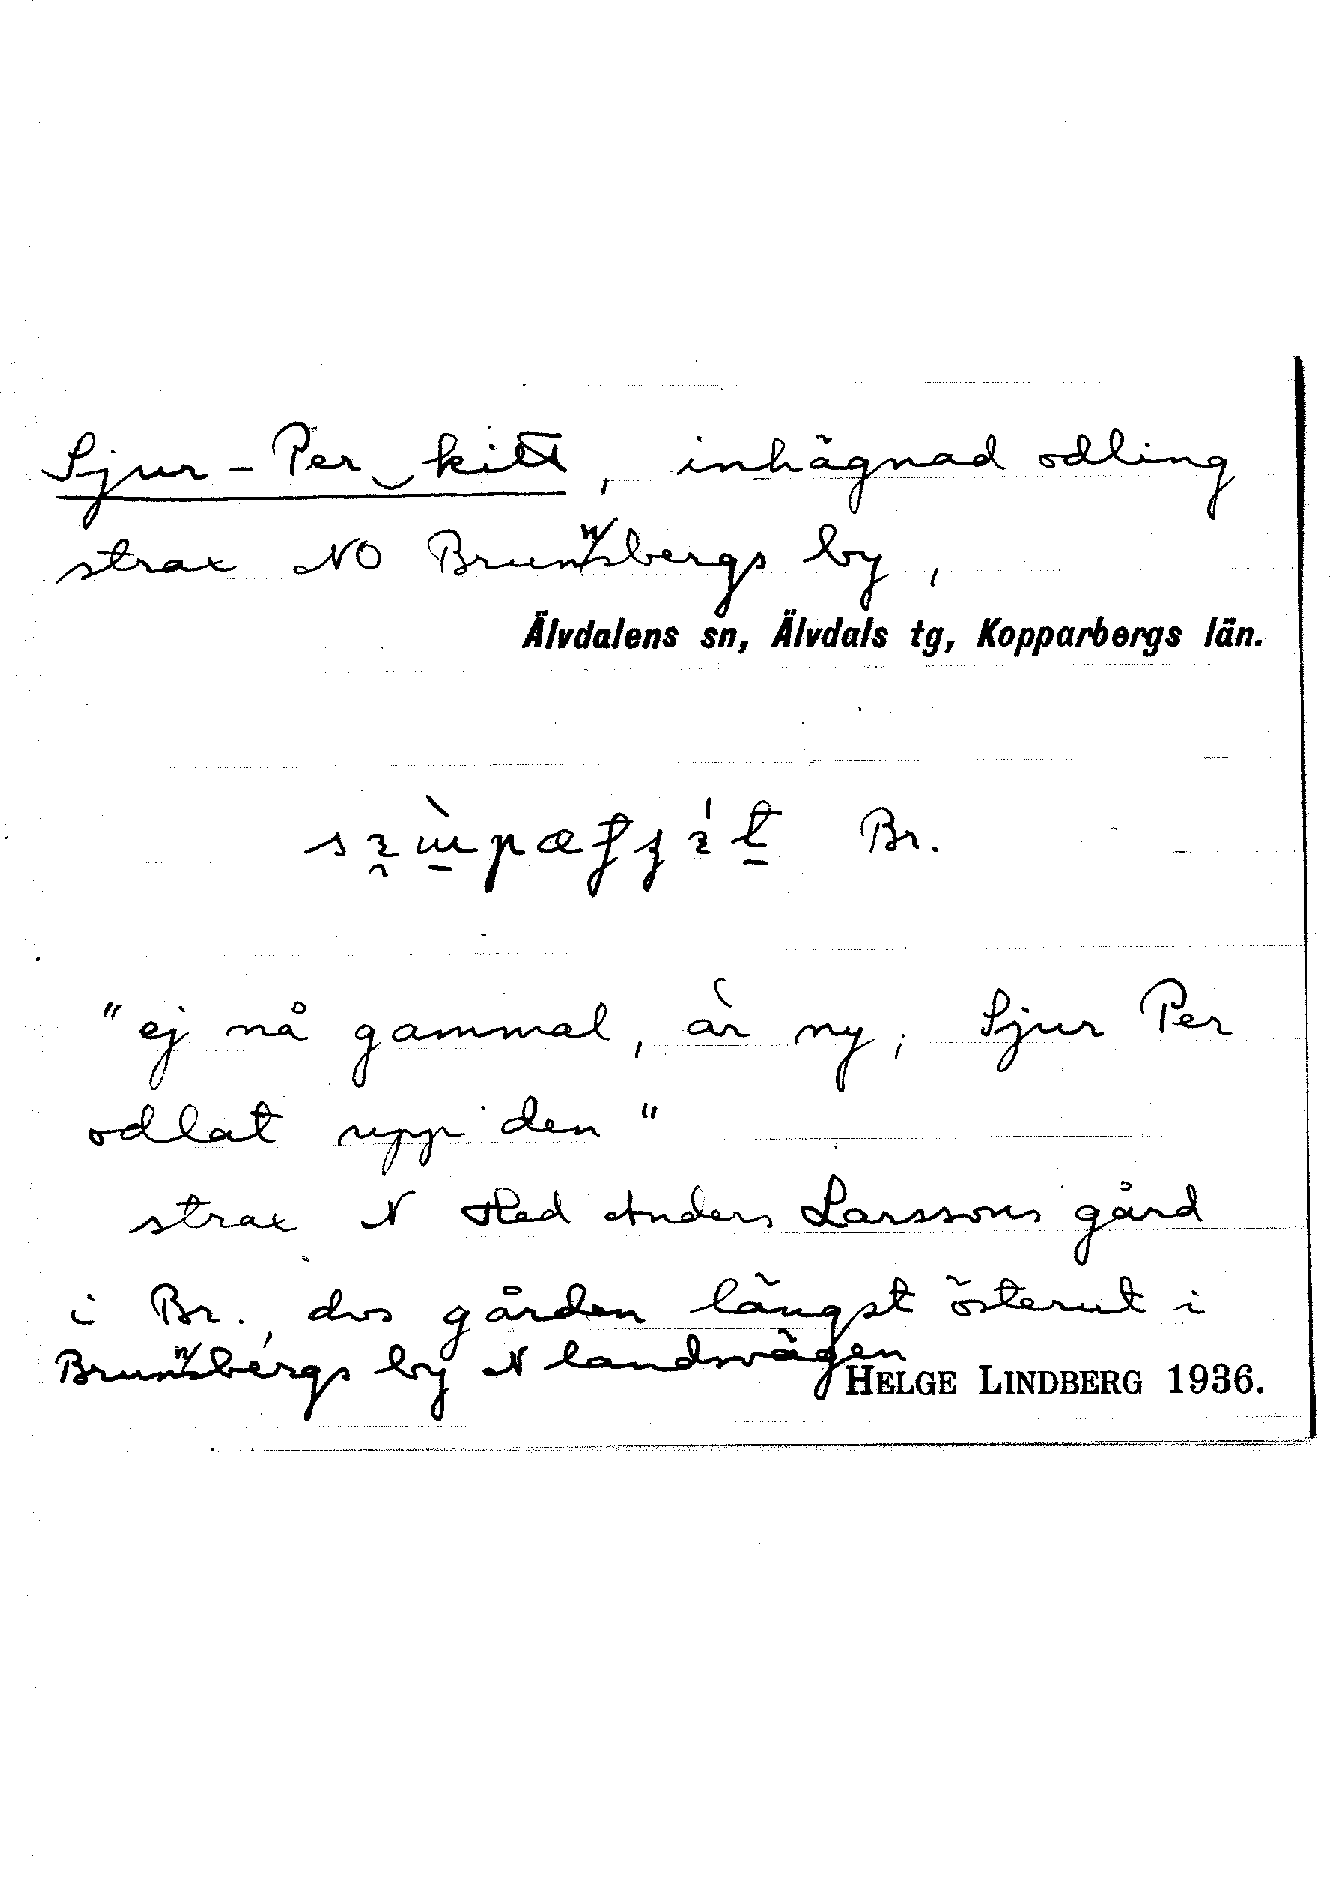 Sjur-Per‿kitt, inhägnad odling
strax NO Brunnsbergs by,
Älvdalens sn, Älvdals tg, Kopparbergs län.
Br.
"ej nå gammal, är ny, Sjur Per
odlat upp den"
strax N Hed Anders Larssons gård
i Br., dvs gården längst österut i
Brunnsbergs by N landsvägen
HELGE LINDBERG 1936.